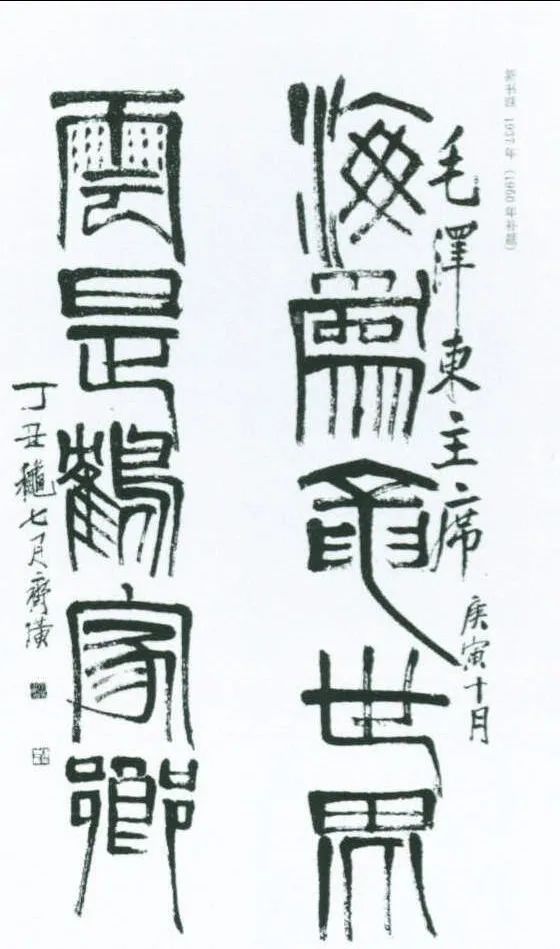 篆书联 1937年（1950年补题）
毛澤東主席 庚寅十月
海爲龍世界
雲是鶴家鄉
丁丑龝七月齊璜